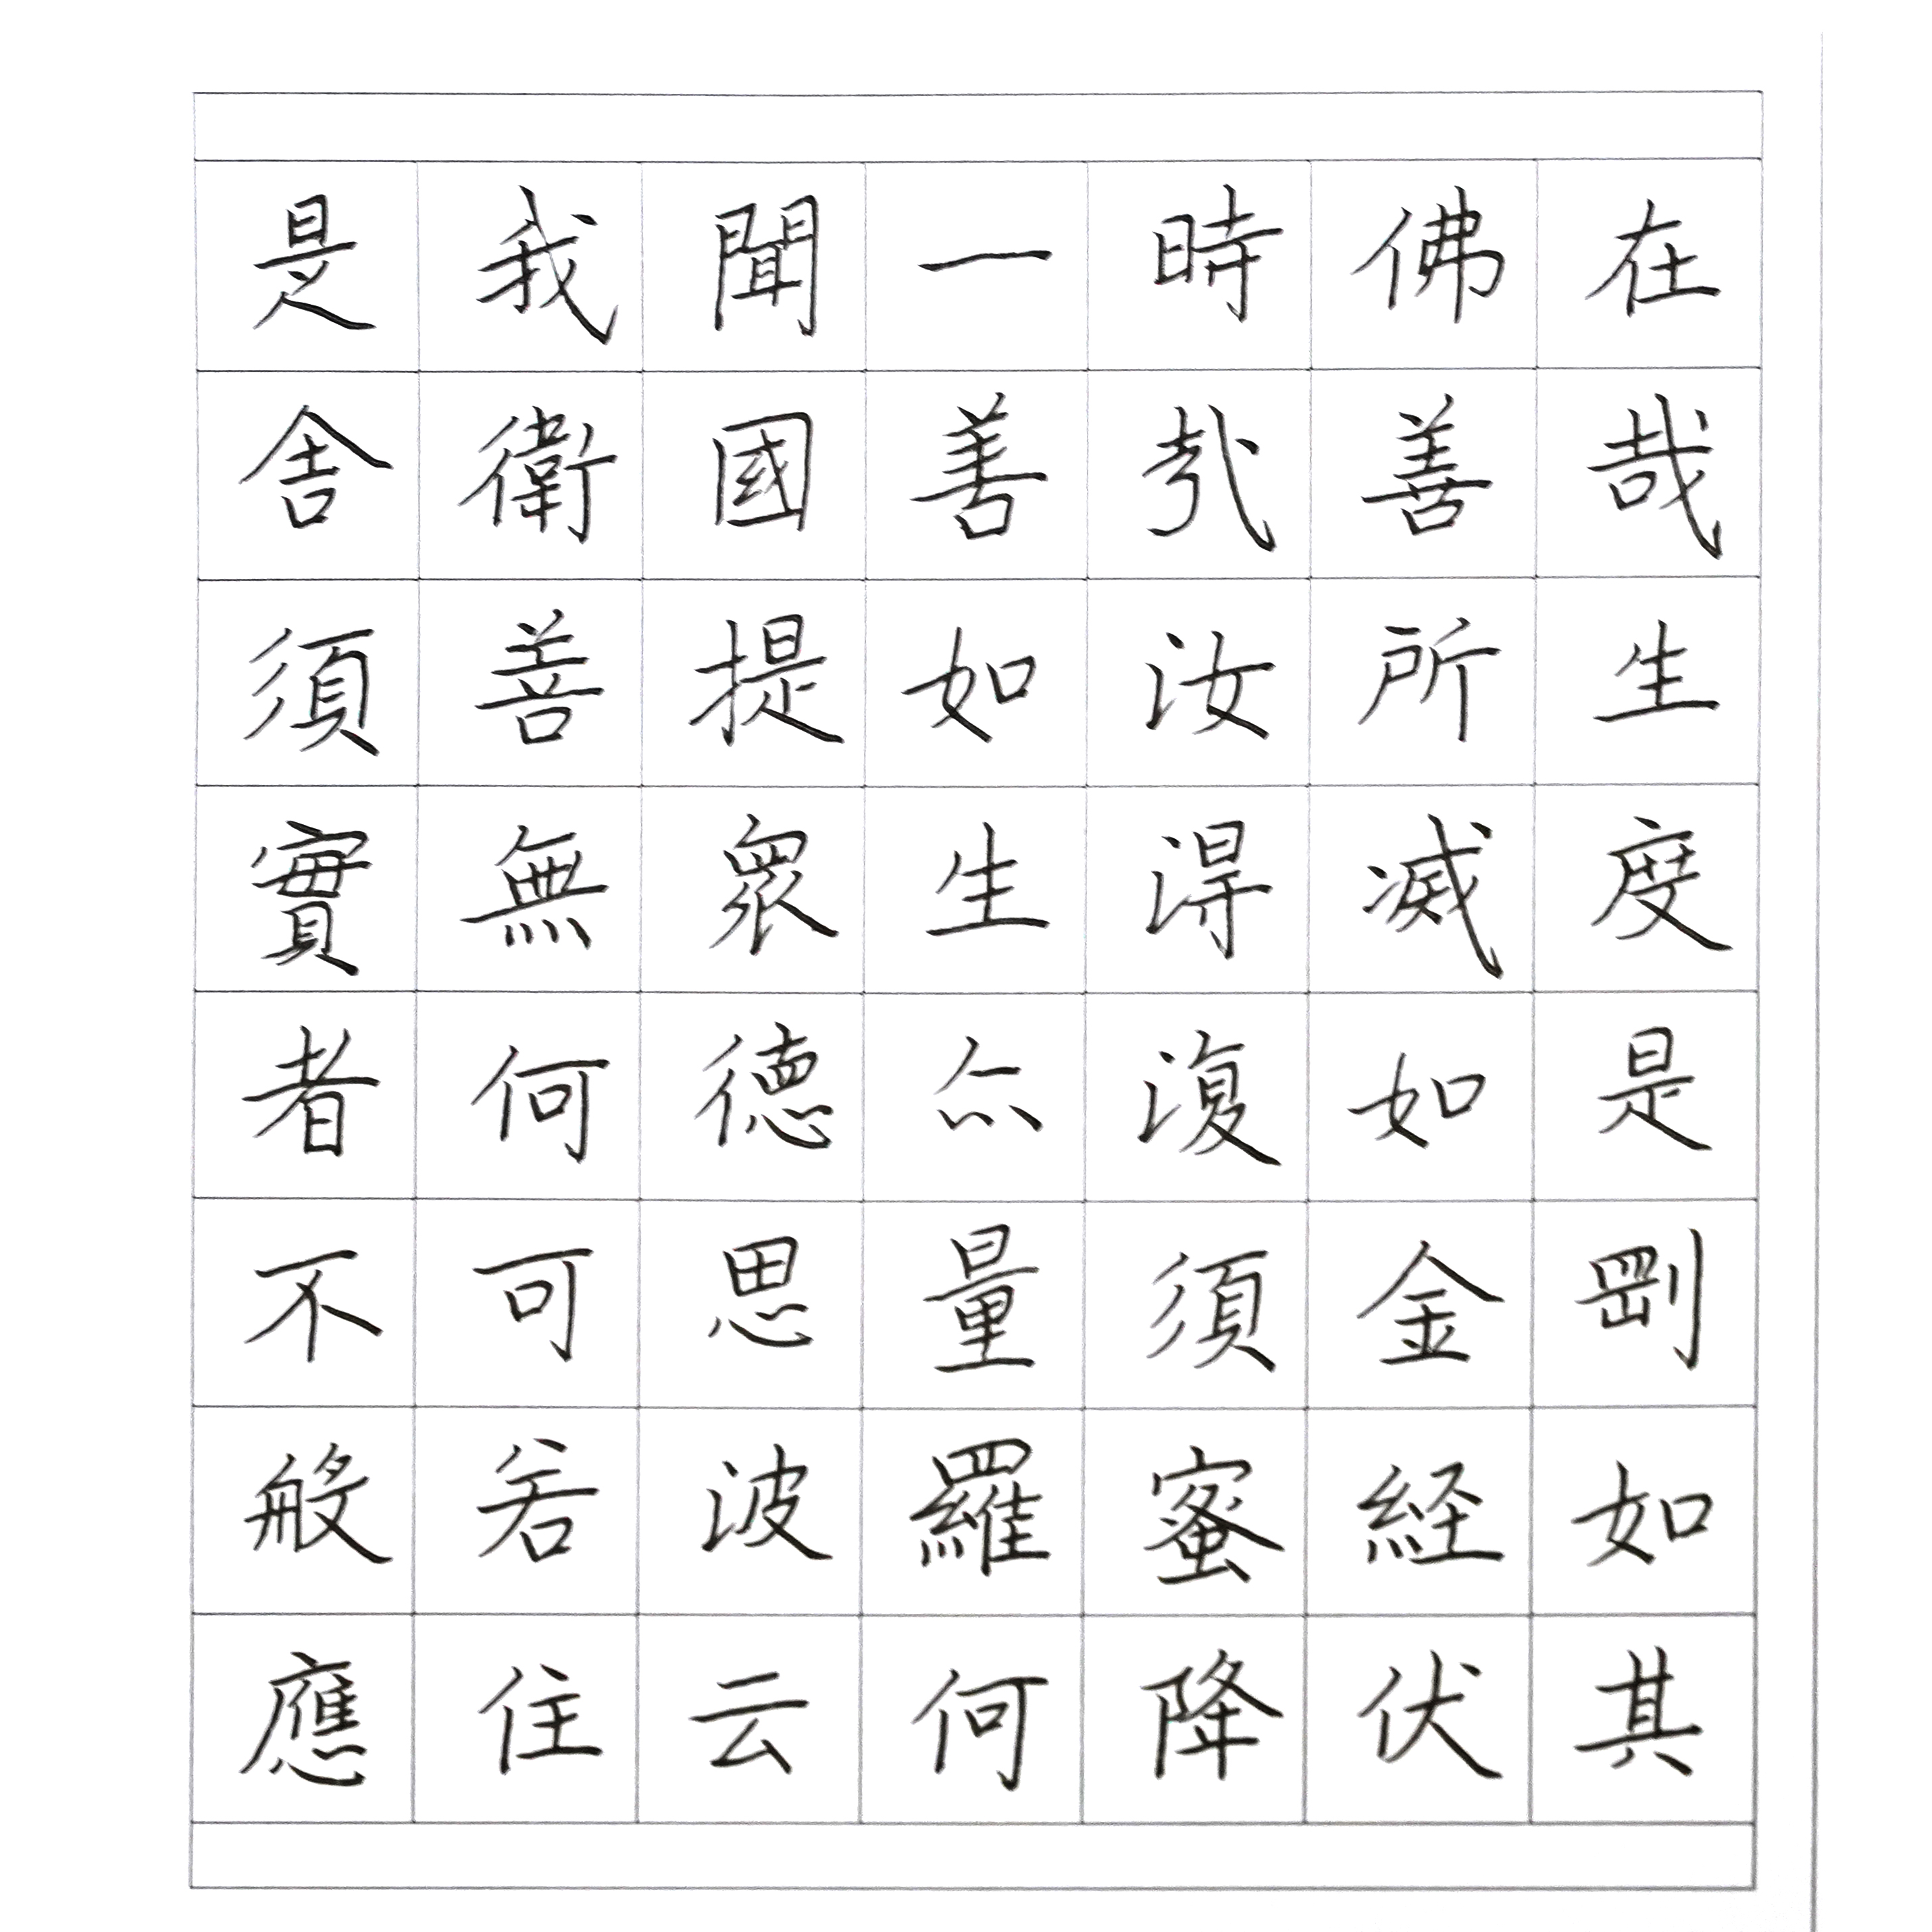 是我聞一時佛在
舍衛國善哉善哉
須菩提如汝所生
實無衆生得滅度
者何德尒復如是
不可思量須金剛
般若波羅蜜経如
應住云何降伏其